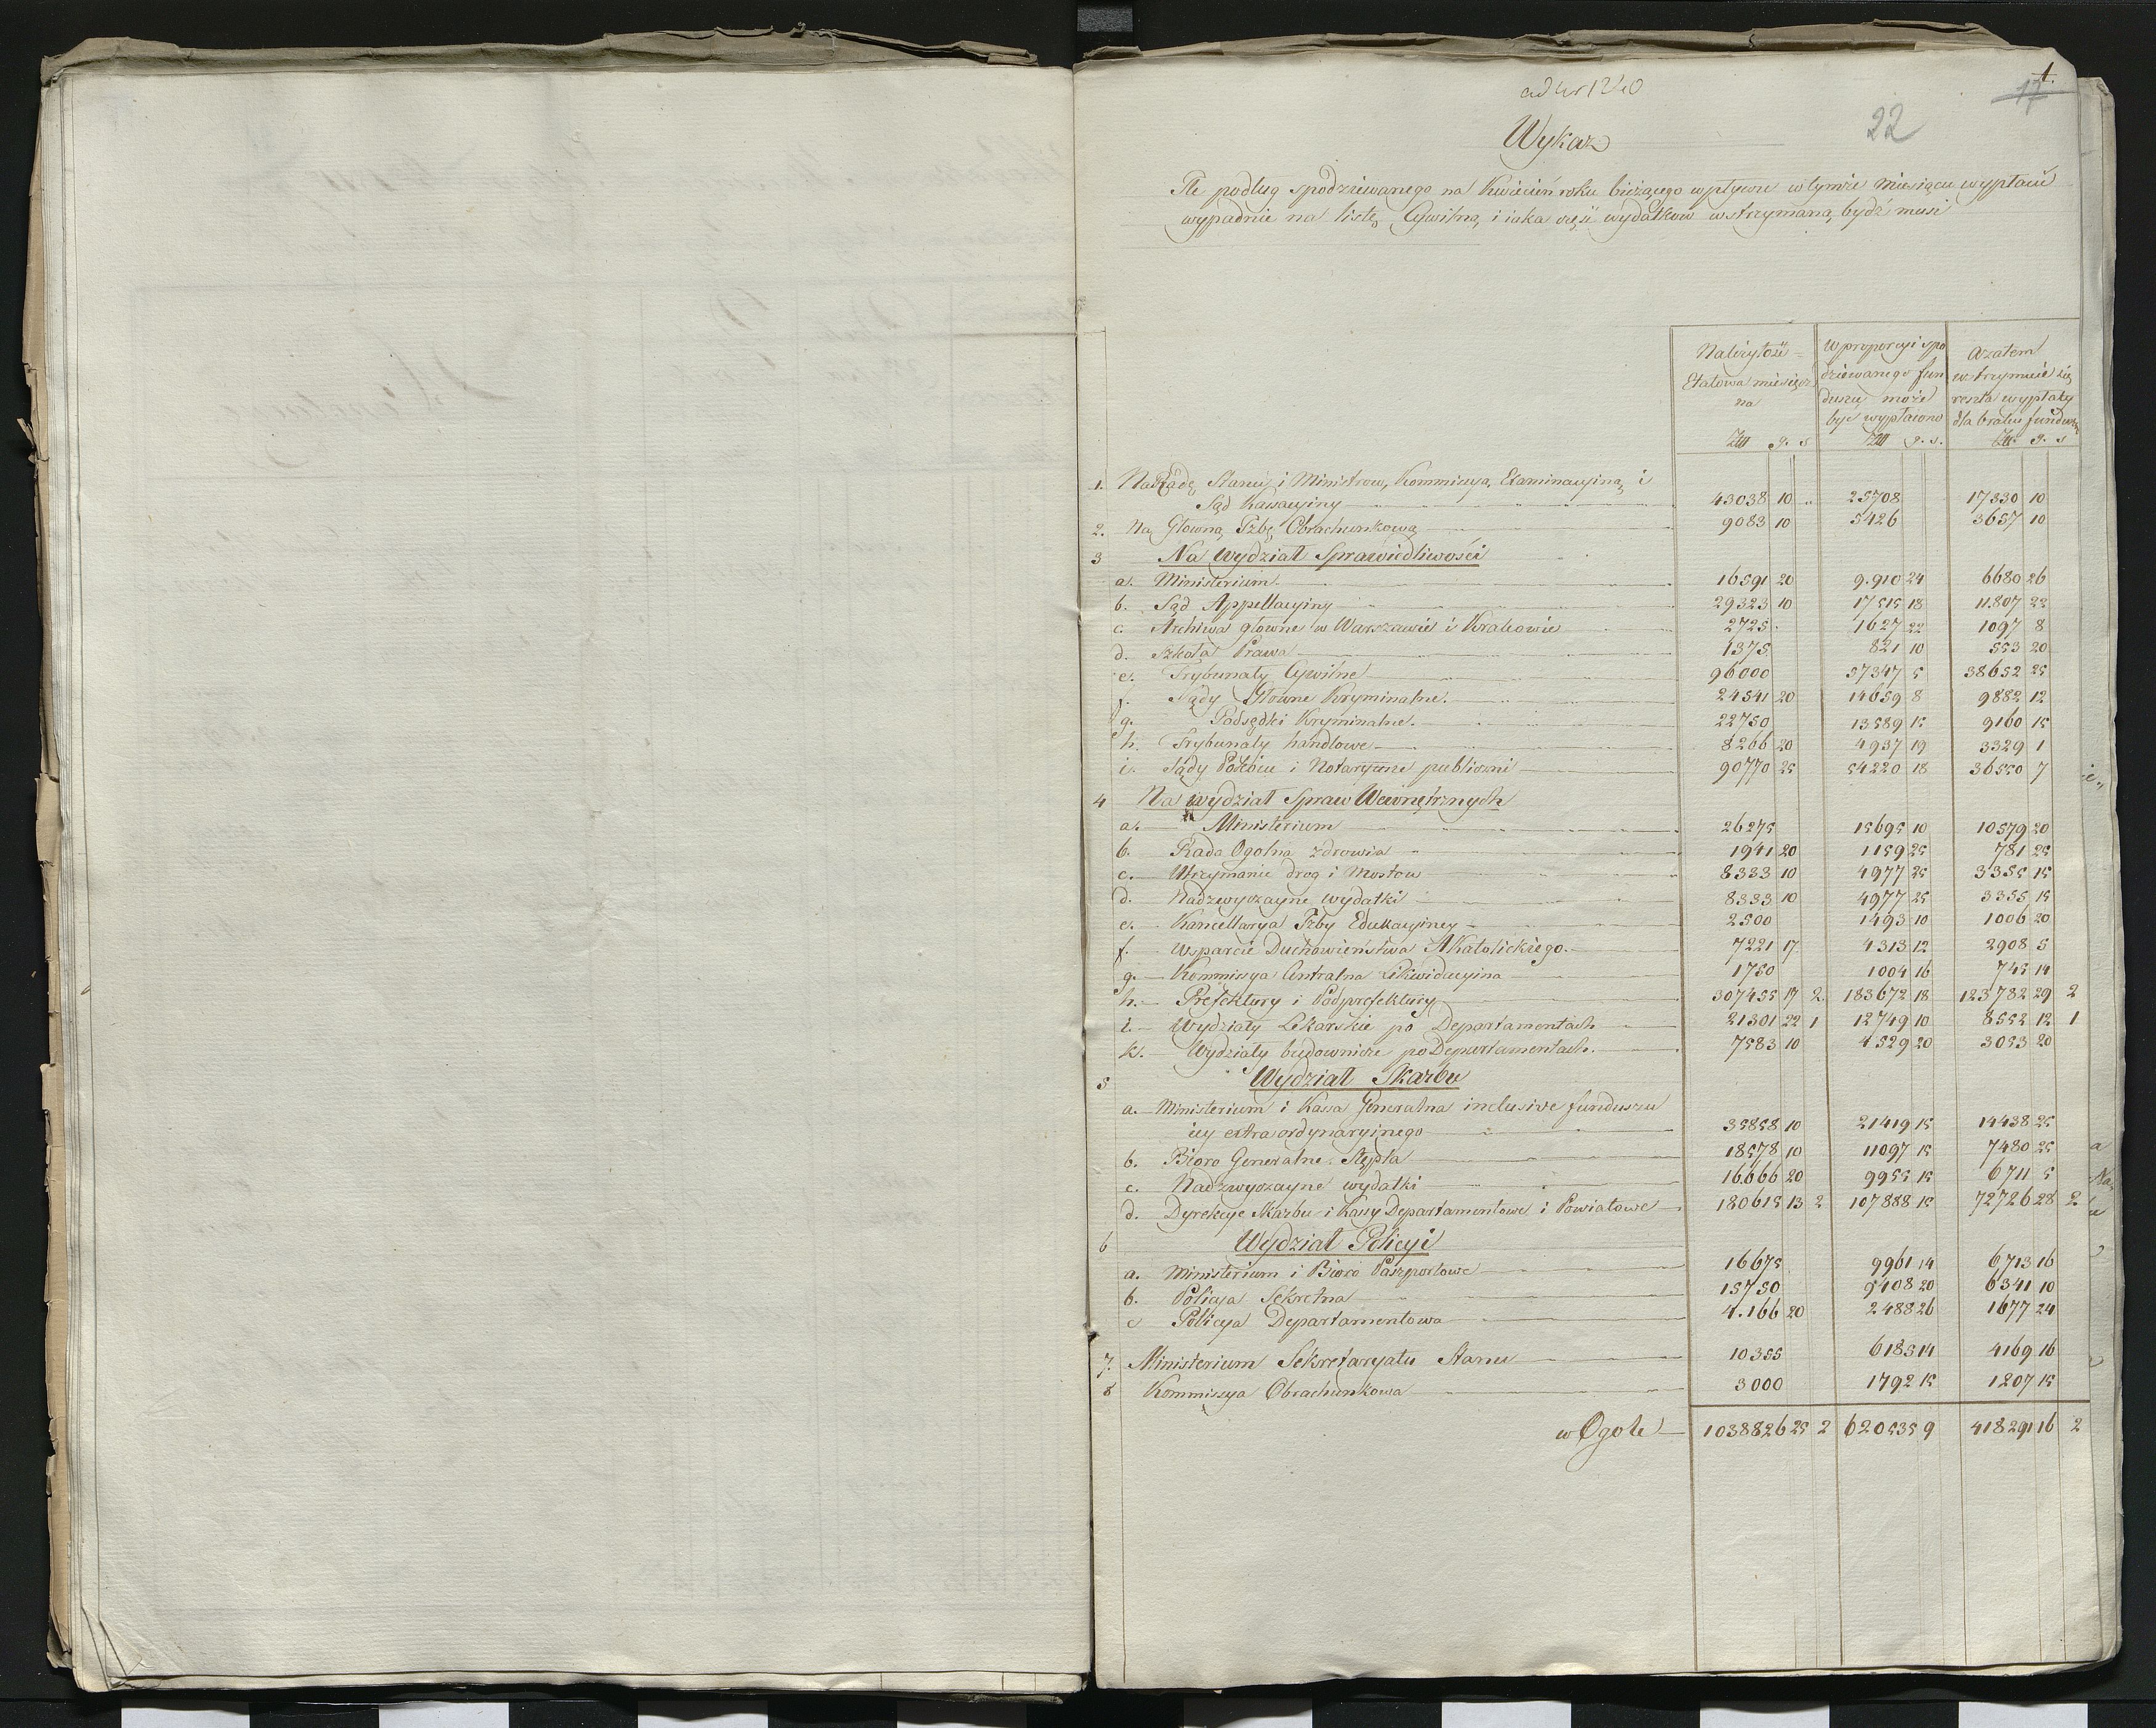 ad Nr 1240
1.
17
22
Wykaz
Ile podług spodziewanego na Kwiecień roku bieżącego wpływu w tymże Miesiącu wypłacić
wypadnie na listę Cywilną, i iaka część wydatków wstrzymaną bydź musi
Należytość Etatowa miesięczna Zł g. s
W proporcyi spodziewanego funduszu może być wypłacono Zł g. s.
A zatem wstrzymuie się reszta wypłaty dla braku funduszu Zł g. s
1. Na Radę Stanu, i Ministrow, Kommissyą Examinacyiną i
Sąd Kassacyiny 43038 10 25708 17330 10
2. Na Głowną Izbę Obrachunkową 9083 10 5426 3657 10
3 Na Wydział Sprawiedliwości
a. Ministerium 16591 20 9.910 24 6680 26
b. Sąd Appellacyiny 29323 10 17515 18 11.807 22
c. Archiwa głowne w Warszawie i Krakowie 2725 1627 22 1097 8
d. Szkoła Prawa 1375 821 10 553 20
e. Trybunały Cywilne 96000 57347 5 38652 25
f. Sądy Głowne Kryminalne. 24541 20 14659 8 9882 12
g. Podsędki Kryminalne. 22750 13589 15 9160 15
h. Trybunały handlowe 8266 20 4937 19 3329 1
i. Sądy Pokoiu i Notaryusze publiczni 90770 25 54220 18 36550 7
4 Na wydział Spraw Wewnętrznych
a. Ministerium 26275 15695 10 10579 20
b. Rada Ogolna zdrowia 1941 20 1159 25 781 25
c. Utrzymanie drog i Mostow 8333 10 4977 25 3355 15
d. Nadzwyczayne wydatki 8333 10 4977 25 3355 15
e. Kancellarya Izby Edukacyiney 2500 1493 10 1006 20
f. Wsparcie Duchowieństwa AKatolickiego. 7221 17 4313 12 2908 5
g. Kommissya Centralna Likwidacyina 1750 1004 16 745 14
h. Prefektury i Podprefektury 307455 17 2 183672 18 123782 29 2
i. Wydziały Lekarskie po Departamentach 21301 22 1 12749 10 8552 12 1
k. Wydziały budownicze po Departamentach. 7583 10 4529 20 3053 20
5 Wydział Skarbu
a. Ministerium i Kassa Generalna inclusive funduszu
iey extraordynaryinego 35858 10 21419 15 14438 25
b. Bióro Generalne Stępla 18578 10 11097 15 7480 25
c. Nadzwyczayne wydatki 16.666 20 9955 15 6711 5
d. Dyrekcye Skarbu i Kassy Departamentowe i Powiatowe 180615 13 2 107888 15 72726 28 2
6 Wydział Policyi
a. Ministerium i Bióro Paszportowe 16675 9961 14 6713 16
b. Policya Sekretna 15750 9408 20 6341 10
c Policya Departamentowa 4.166 20 2488 26 1677 24
7. Ministerium Sekretaryatu Stanu 10355 6185 14 4169 16
8 Kommissya Obrachunkowa 3000 1792 15 1207 15
w Ogole 1038826 25 2 620535 9 418291 16 2